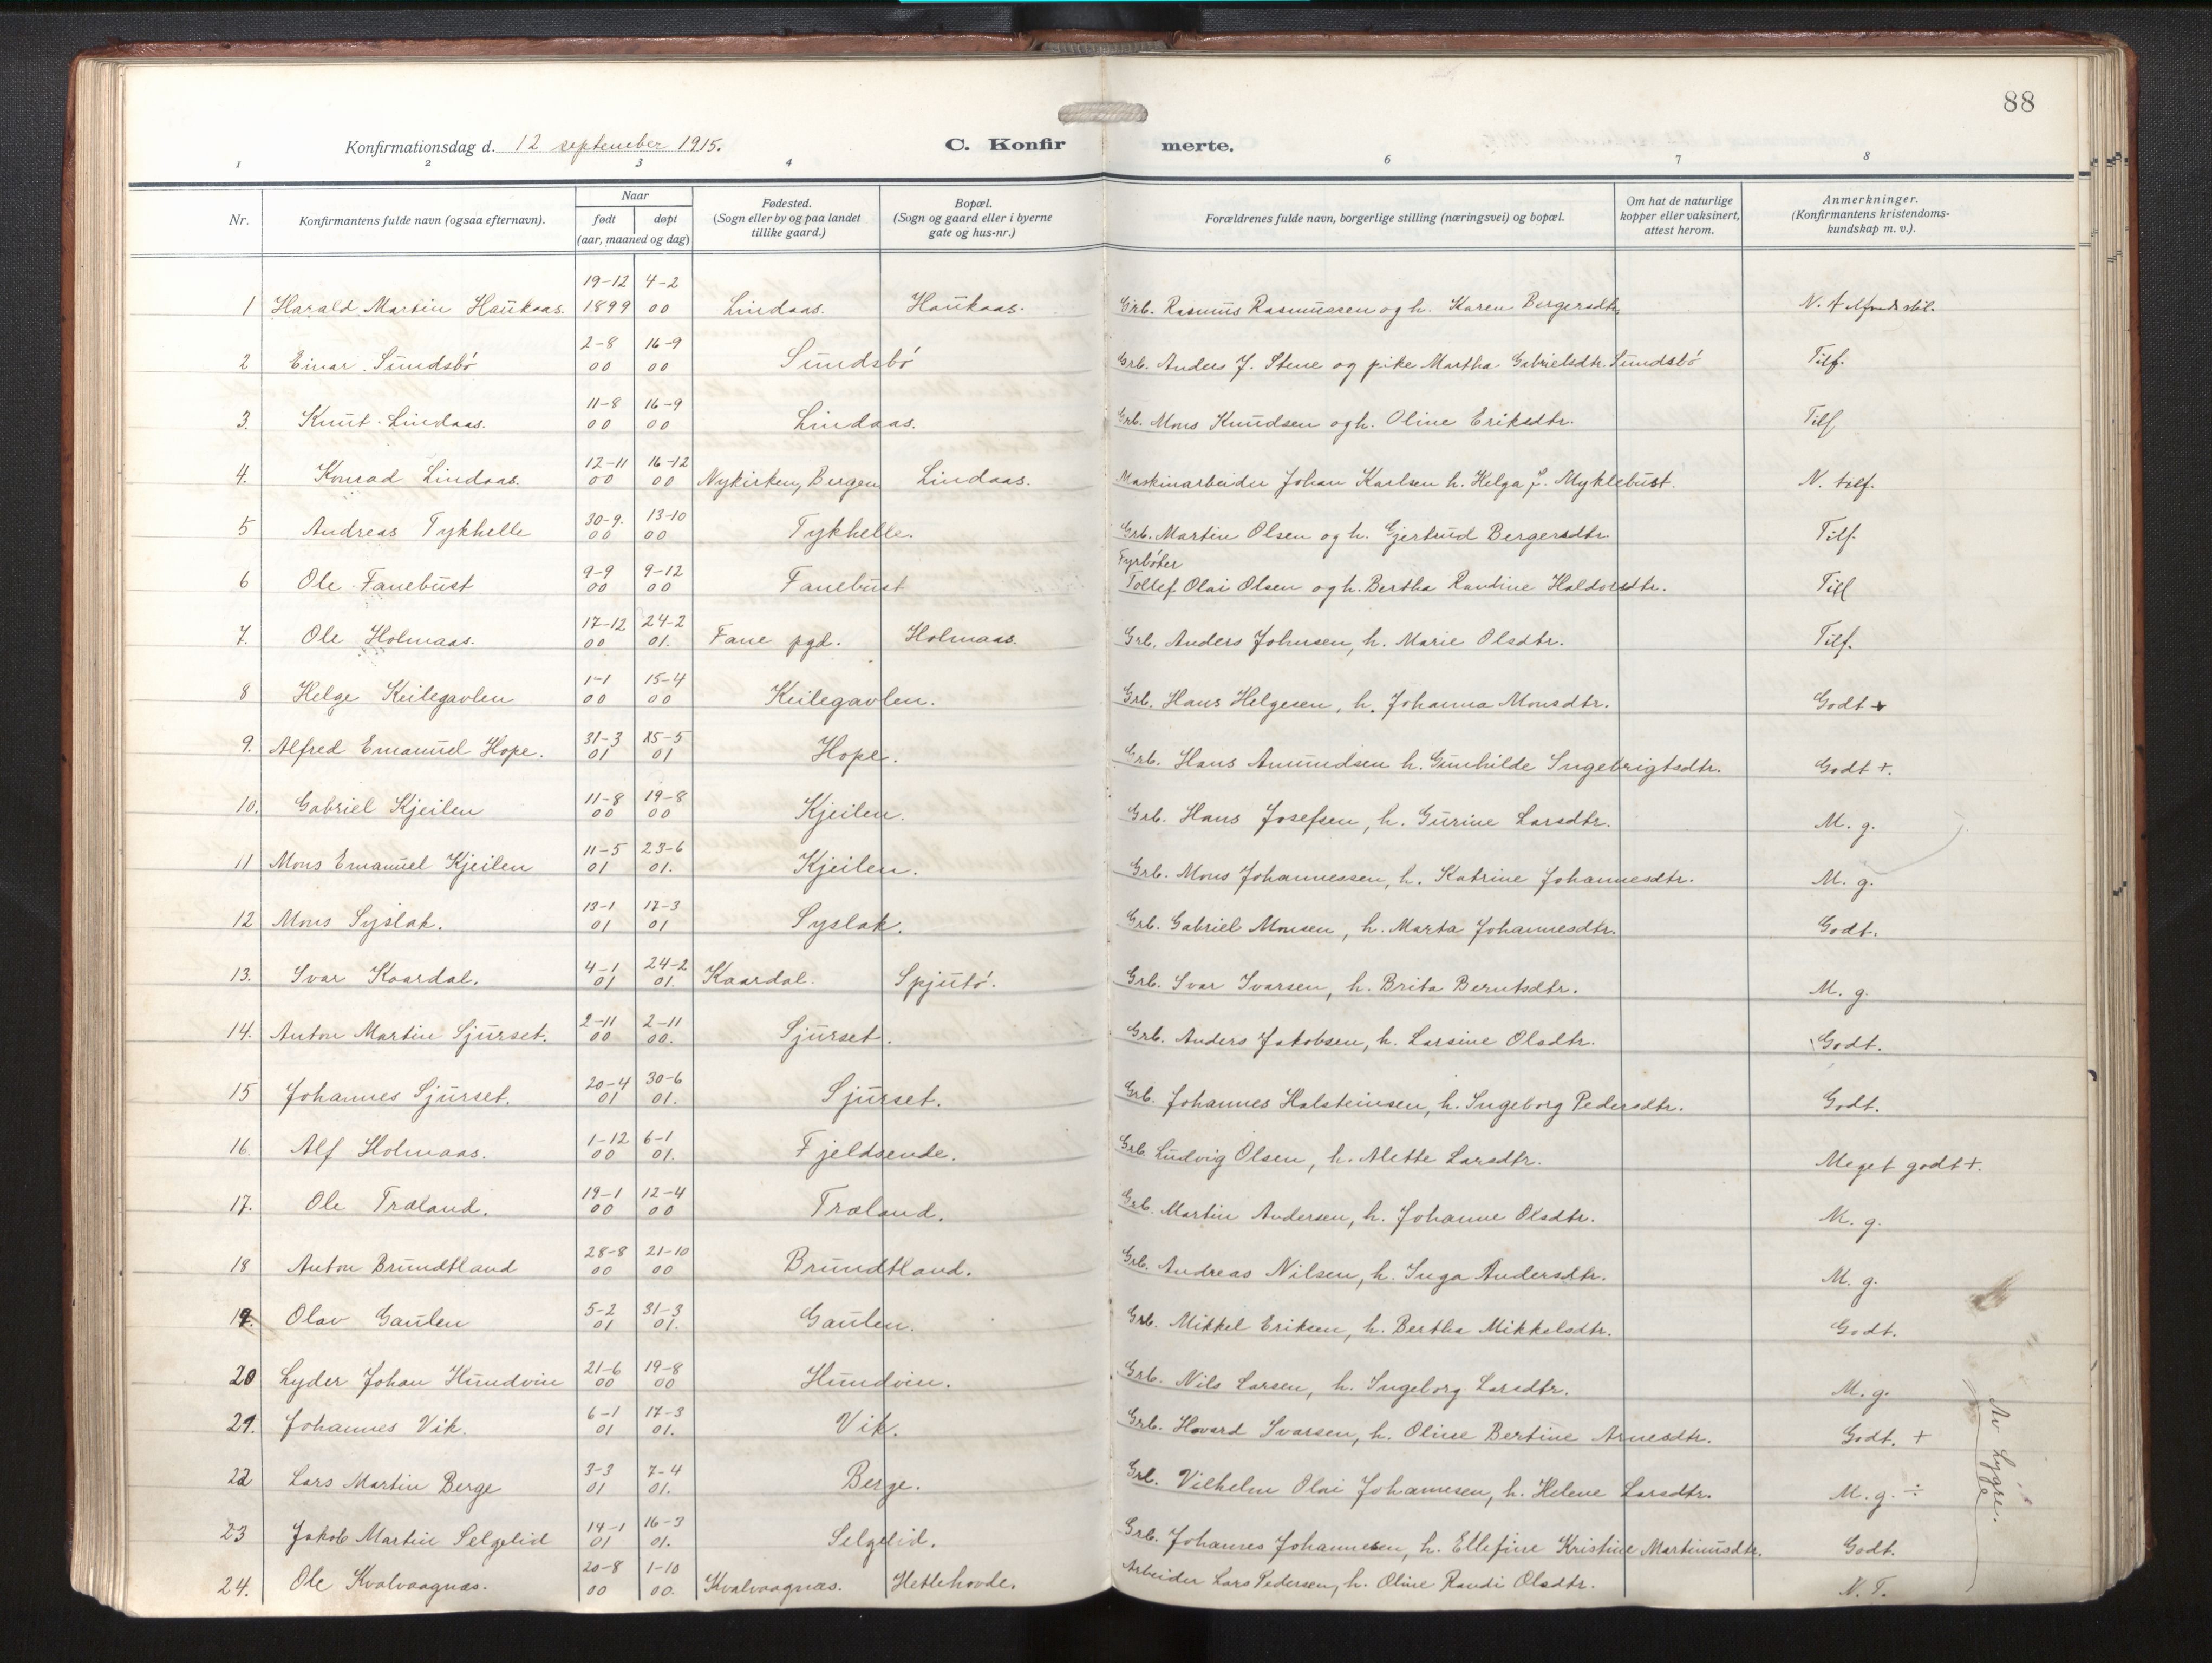 88
Konfirmationsdag d. 12 september 1915.
C. Konfirmerte.
1 2 3 4 6 7 8
Nr.
Konfirmantens fulde navn (ogsaa efternavn).
Naar
født døpt
(aar, maaned og dag)
Fødested.
(Sogn eller by og paa landet
tillike gaard.)
Bopæl.
(Sogn og gaard eller i byerne
gate og hus-nr.)
Forældrenes fulde navn, borgerlige stilling (næringsvei) og bopæl.
Om hat de naturlige
kopper eller vaksinert,
attest herom.
Anmerkninger.
(Konfirmantens kristendoms-
kundskap m. v.).
19-12 4-2
1 Harald Martin Haukaas. 1899 00 Lindaas. Haukaas. Grb. Rasmus Rasmussen og h. Karen Bergersdtr. N.
2-8 16-9
2 Einar Sundsbó 00 00 Sundsbó Grb. Anders J. Stene og pike Martha Gabrielsdtr. Sundsbó Tilf.
11-8 16-9
3. Knut Lindaas. 00 00 Lindaas. Grb. Mons Knudsen og h. Oline Eriksdtr. Tilf
12-11 16-12
4. Konrad Lindaas. 00 00 Nykirken, Bergen Lindaas. Maskinarbeider Johan Karlsen h. Helga f. Myklebust. N. tilf.
30-9. 13-10
5 Andreas Tykhelle 00 00 Tykhelle. Grb. Martin Olsen og h. Gjertrud Bergersdtr. Tilf.
9-9 9-12 Fyrbóter
6 Ole Fanebust 00 00 Fanebust Tollef Olai Olsen og h. Bertha Randine Haldorsdtr. Tilf
17-12 24-2
7. Ole Holmaas. 00 01. Fane pgd. Holmaas. Grb. Anders Johnsen, h. Marie Olsdtr. Tilf.
1-1 15-4
8 Helge Keilegavlen 00 00 Keilegavlen. Grb. Hans Helgesen, h. Johanna Monsdtr. Godt +
31-3 15-5
9. Alfred Emanuel Hope. 01 01 Hope. Grb. Hans Amundsen h. Gunhilde Ingebrigtsdtr. Godt +.
11-8 19-8
10. Gabriel Kjeilen 00 00 Kjeilen. Grb. Hans Josefsen, h. Gurine Larsdtr. M. g.
11-5 23-6
11 Mons Emanuel Kjeilen 01 01. Kjeilen. Grb. Mons Johannessen, h. Katrine Johannesdtr. M. g.
13-1 17-3
12 Mons Syslak. 01 01 Syslak. Grb. Gabriel Monsen, h. Marta Johannesdtr. Godt.
4-1 24-2
13. Ivar Kaardal. 01 01. Kaardal. Spjutó. Grb. Ivar Ivarsen, h. Brita Berntsdtr. M. g.
2-11 2-11
14. Anton Martin Sjurset. 00 00. Sjurset. Grb. Anders Jakobsen, h. Larsine Olsdtr. Godt.
20-4 30-6
15 Johannes Sjurset. 01 01. Sjurset. Grb. Johannes Halsteinsen, h. Ingeborg Pedersdtr. Godt.
1-12 6-1
16. Alf Holmaas. 00 01. Fjeldsende. Grb Ludvig Olsen, h. Alette Larsdtr. Meget godt +.
19-1 12-4
17. Ole Træland. 00 00 Træland. Grb. Martin Andersen, h. Johanne Olsdtr. M. g.
28-8 21-10
18 Anton Brundtland 00 00 Brundtland. Grb. Andreas Nilsen, h. Inga Andersdtr. M. g.
5-2 31-3
19. Olav Gaulen 01 01. Gaulen. Grb. Mikkel Eriksen, h. Bertha Mikkelsdtr. Godt.
21-6 19-8
20 Lyder Johan Hundvin 00 00 Hundvin. Grb. Nils Larsen, h. Ingeborg Larsdtr. M. g.
6-1 17-3
21. Johannes Vik. 01 01. Vik. Grb. Hovard Ivarsen, h. Oline Bertine Arnesdtr. Godt. +
3-3 7-4
22 Lars Martin Berge 01 01. Berge. Grb. Vilhelm Olai Johannesen, h. Helene Larsdtr. M. g. ÷
14-1 16-3
23 Jakob Martin Selgelid 01 01. Selgelid. Grb. Johannes Johannesen, h. Ellefine Kristine Martinusdtr. Godt.
20-8 1-10
24. Ole Kvalvaagnæs. 00 00. Kvalvaagnæs. Hetlehovde. Arbeider Lars Pedersen, h. Oline Randi Olsdtr. N. T.
Av Lygre.